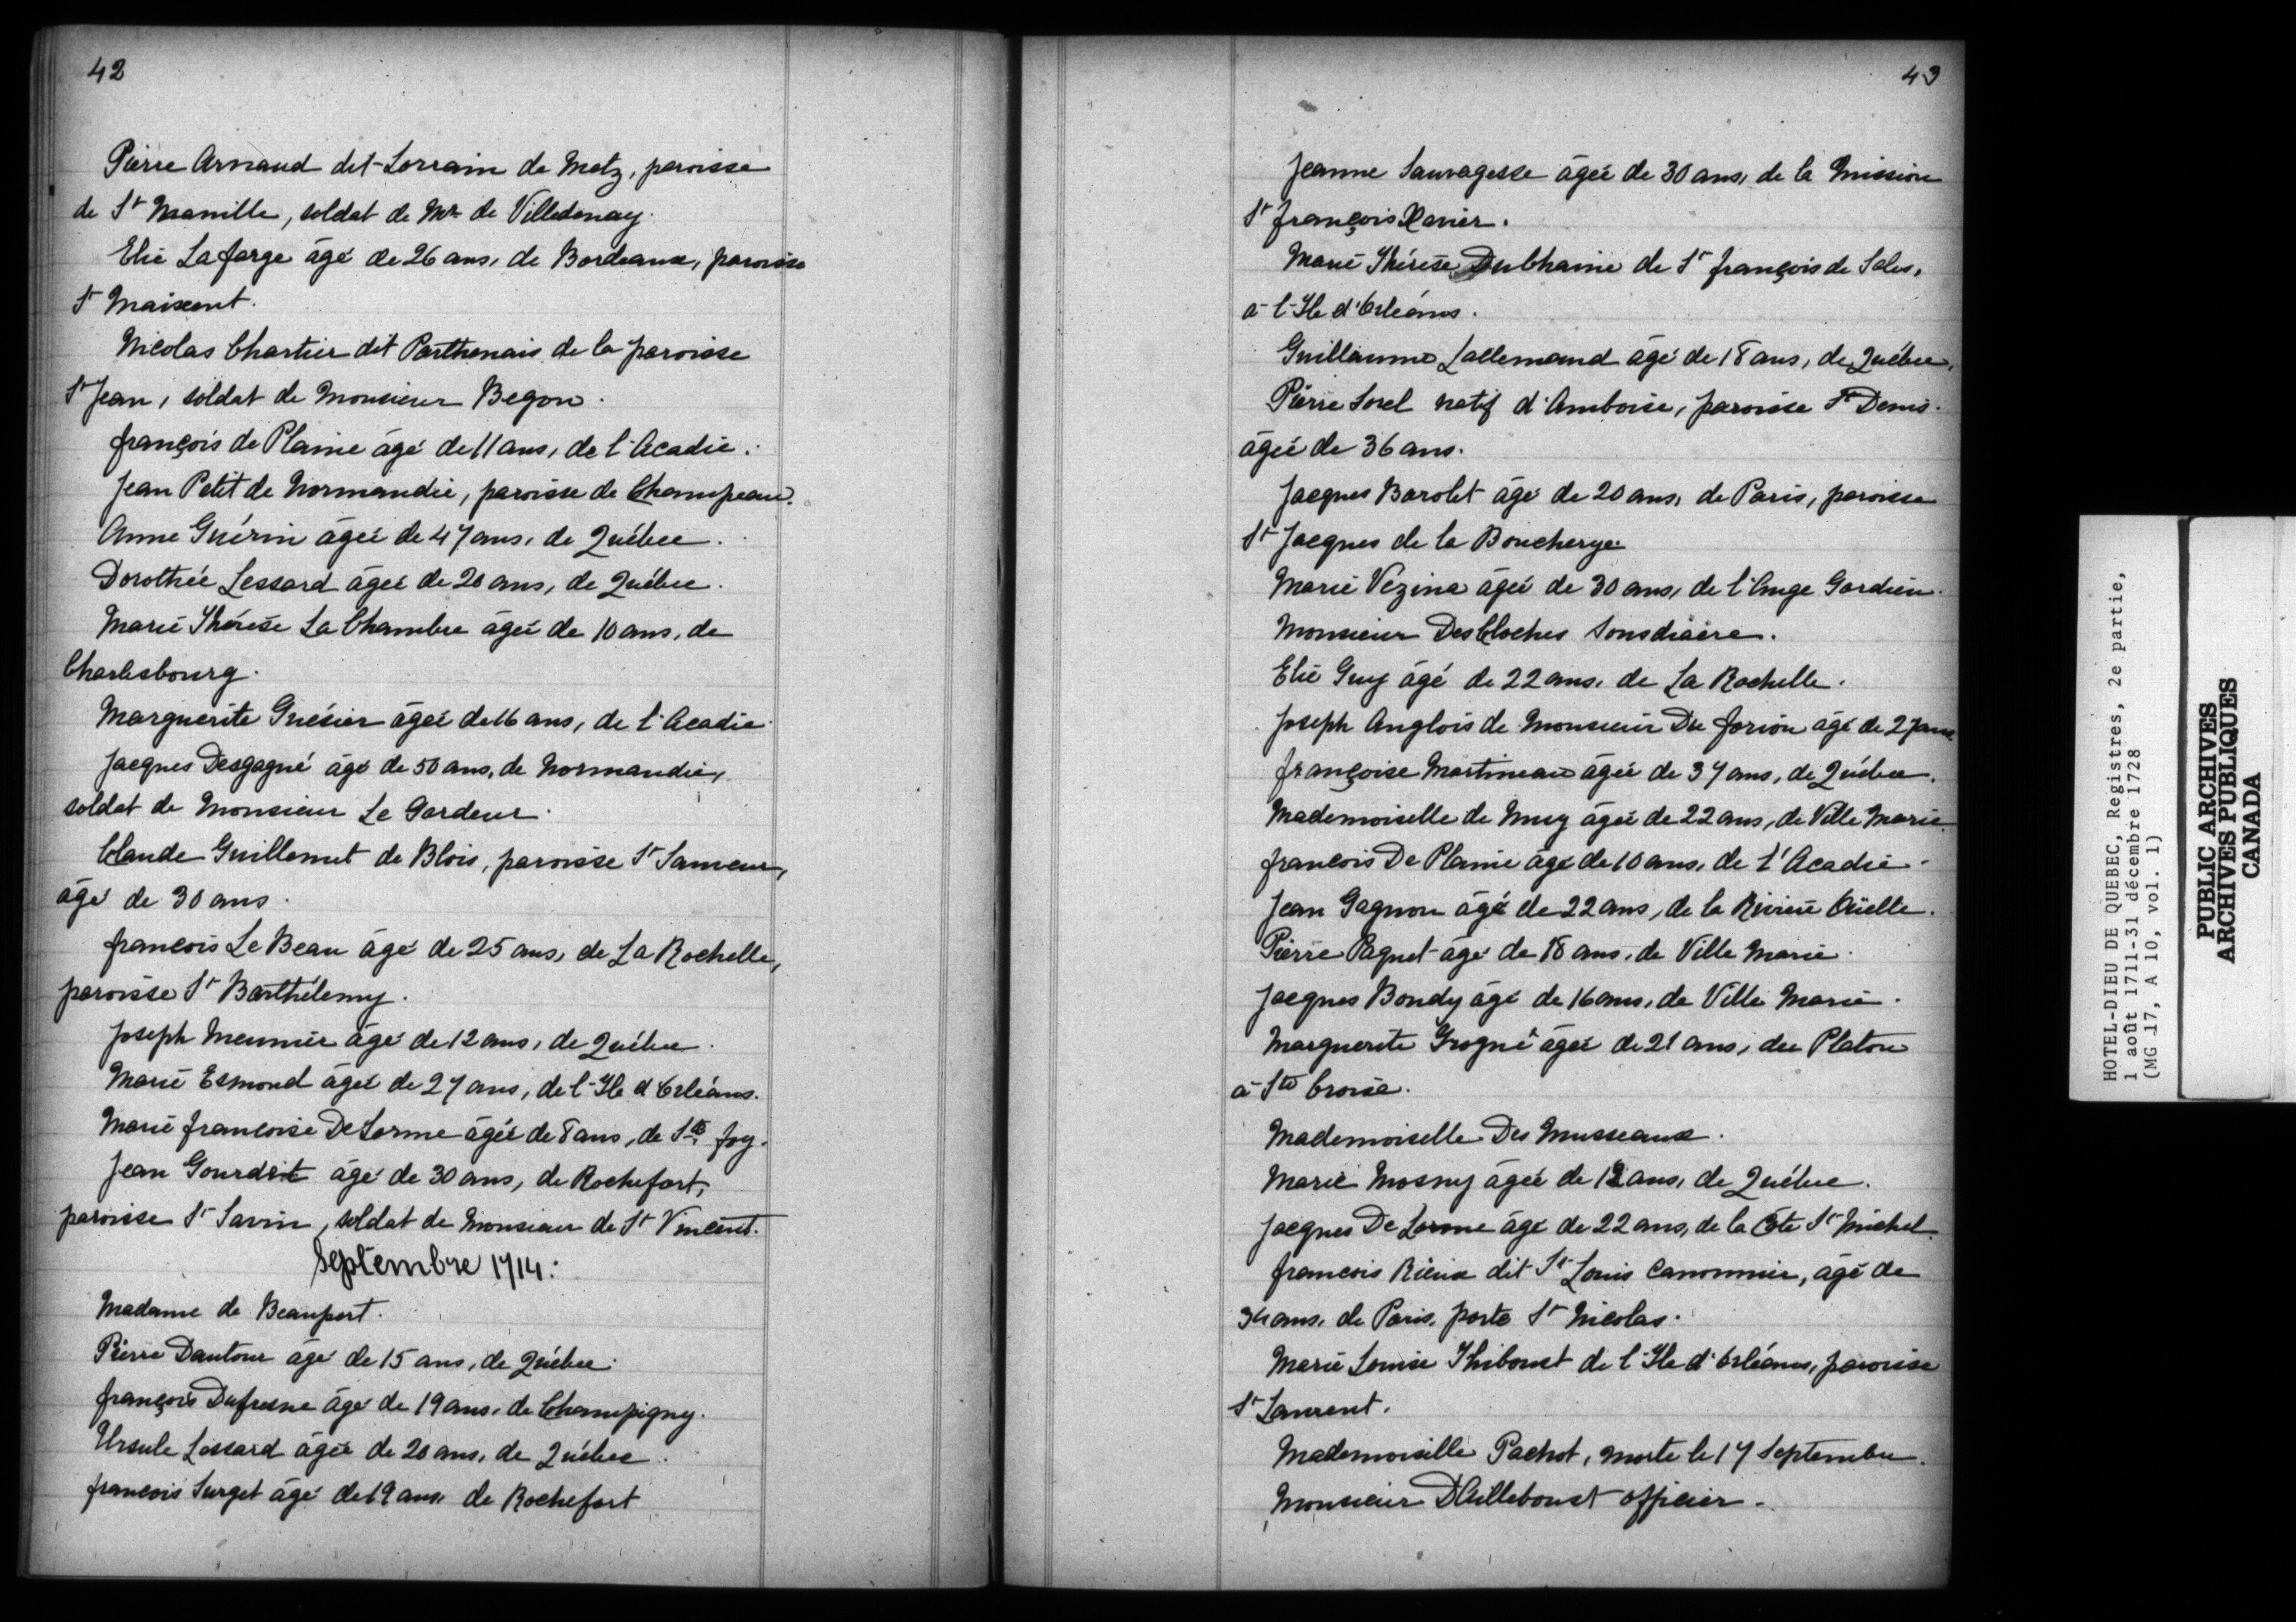 42
Pierre Arnaud dit Lorrain de Metz, paroisse
de St Mamille, soldat de Mr de Villedonay.
Elie Lafarge âgé de 26 ans, de Bordeaux, paroisse
St Maixent.
Nicolas Chartier dit Parthenais de la paroisse
St Jean, soldat de Monsieur Begon.
françois de Plaine âgé de 11 ans, de l'Acadie.
Jean Petit de Normandie, paroisse de Champeau.
Anne Guérin âgée de 47 ans, de Québec.
Dorothée Lessard âgée de 20 ans, de Québec.
Marie Thérèse La Chambre âgée de 10 ans, de
Charlesbourg.
Marguerite Guésier âgée de 16 ans, de l'Acadie
Jacques Desgagné âgé de 50 ans, de Normandie,
soldat de Monsieur Le Gardeur.
Claude Guillemet de Blois, paroisse St Sameur,
âgé de 30 ans.
francois Le Beau âgé de 25 ans, de La Rochelle,
paroisse St Barthélemy.
Joseph Meunier âgé de 12 ans, de Québec.
Marie Esmond âgée de 27 ans, de l'Ile d'Orléans.
Marie francoise DeLorme âgée de 8 ans, de Ste foy.
Jean Gourdrit âgé de 30 ans, de Rochefort,
paroisse St Savin, soldat de Monsieur de St Vincent.
Septembre 1714:
Madame de Beauport.
Pierre Dautour âgé de 15 ans, de Québec.
françois Dufresne âgé de 19 ans, de Champigny.
Ursule Lessard âgée de 20 ans, de Québec.
francois Surget âgé de 19 ans de Rochefort
43
Jeanne Sauvagesse âgée de 30 ans, de la Mission
St françois Xavier.
Marie Thérèse DubChaine de St françois de Sales,
à l'Ile d'Orléans.
Guillaume Lallemand âgé de 18 ans, de Québec,
Pierre Sorel natif d'Amboise, paroisse St Denis.
âgée de 36 ans.
Jacques Barolet âgé de 20 ans, de Paris, paroisse
St Jacques de la Boucherye.
Marie Vézina âgée de 30 ans, de l'Ange Gardien.
Monsieur DesCloches Sousdiacre.
Elie Guy âgé de 22 ans, de La Rochelle.
Joseph Anglois de Monsieur Du forion âgé de 27 ans
françoise Martineau âgée de 37 ans, de Québec.
Mademoiselle de Muy âgée de 22 ans, de Ville Marie.
francois De Plaine âgé de 10 ans, de l'Acadie.
Jean Gagnon âgé de 22 ans, de la Rivière Oüelle.
Pierre Paquet âgé de 18 ans, de Ville Marie.
Jacques Bondy âgé de 16 ans, de Ville Marie.
Marguerite Grogné âgée de 21 ans, du Platon
à Ste Croise.
Mademoiselle Des Musseaux.
Marie Mosny âgée de 12 ans, de Québec.
Jacques De Lorme âgé de 22 ans, de la Côte St Michel.
francois Rieux dit St Louis Canonnier, âgé de
34 ans, de Paris, porte St Nicolas.
Marie Louise Thiboust de l'Ile d'Orléans, paroisse
St Laurent.
Mademoiselle Pachot, morte le 17 Septembre.
Monsieur D'Ailleboust officier.
HOTEL-DIEU DE QUEBEC, Registres, 2e partie,
1 août 1711-31 décembre 1728
(MG 17, A 10, vol. 1)
PUBLIC ARCHIVES
ARCHIVES PUBLIQUES
CANADA